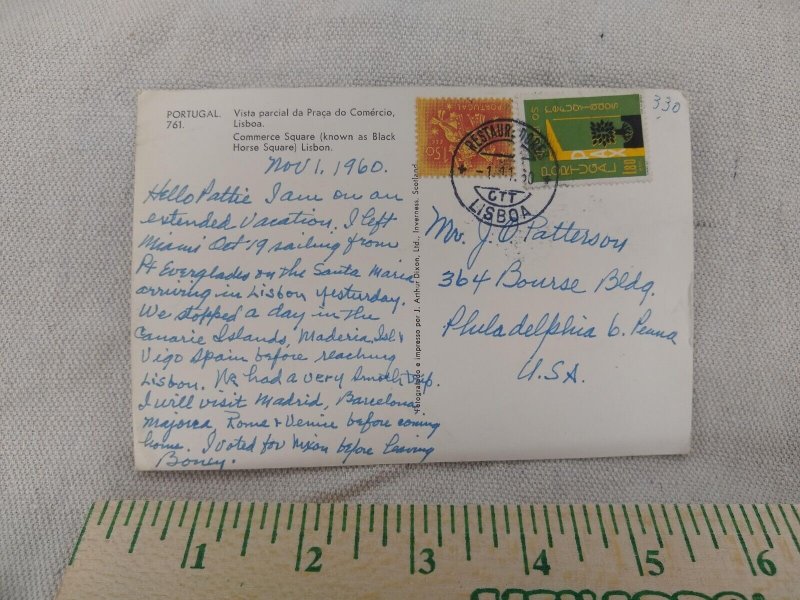 PORTUGAL. Vista parcial da Praça do Comércio,
761. Lisboa.
Commerce Square (known as Black
Horse Square) Lisbon.
Nov 1, 1960.
Hello Pattie I am on an
extended Vacation. I left
Miami Oct 19 sailing from
Pt Everglades on the Santa Maria
arriving in Lisbon yesterday.
We stopped a day in the
Canarie Islands, Maderia, Isl &
Vigo Spain before reaching
Lisbon. We had a very smooth trip.
I will visit Madrid, Barcelona,
Majorca, Roma & Venice before coming
home. I voted for Nixon before leaving
Boney.
Fotografado e impresso por J. Arthur Dixon, Ltd., Inverness, Scotland
PORTUGAL
refugiados
PORTUGAL
1$80
RESTAURADORES
-1.11.60
CTT
LISBOA
330
Mr. J. O Patterson
364 Bourse Bldg.
Philadelphia 6. Penna
U.S.A.
1 2 3 4 5 6